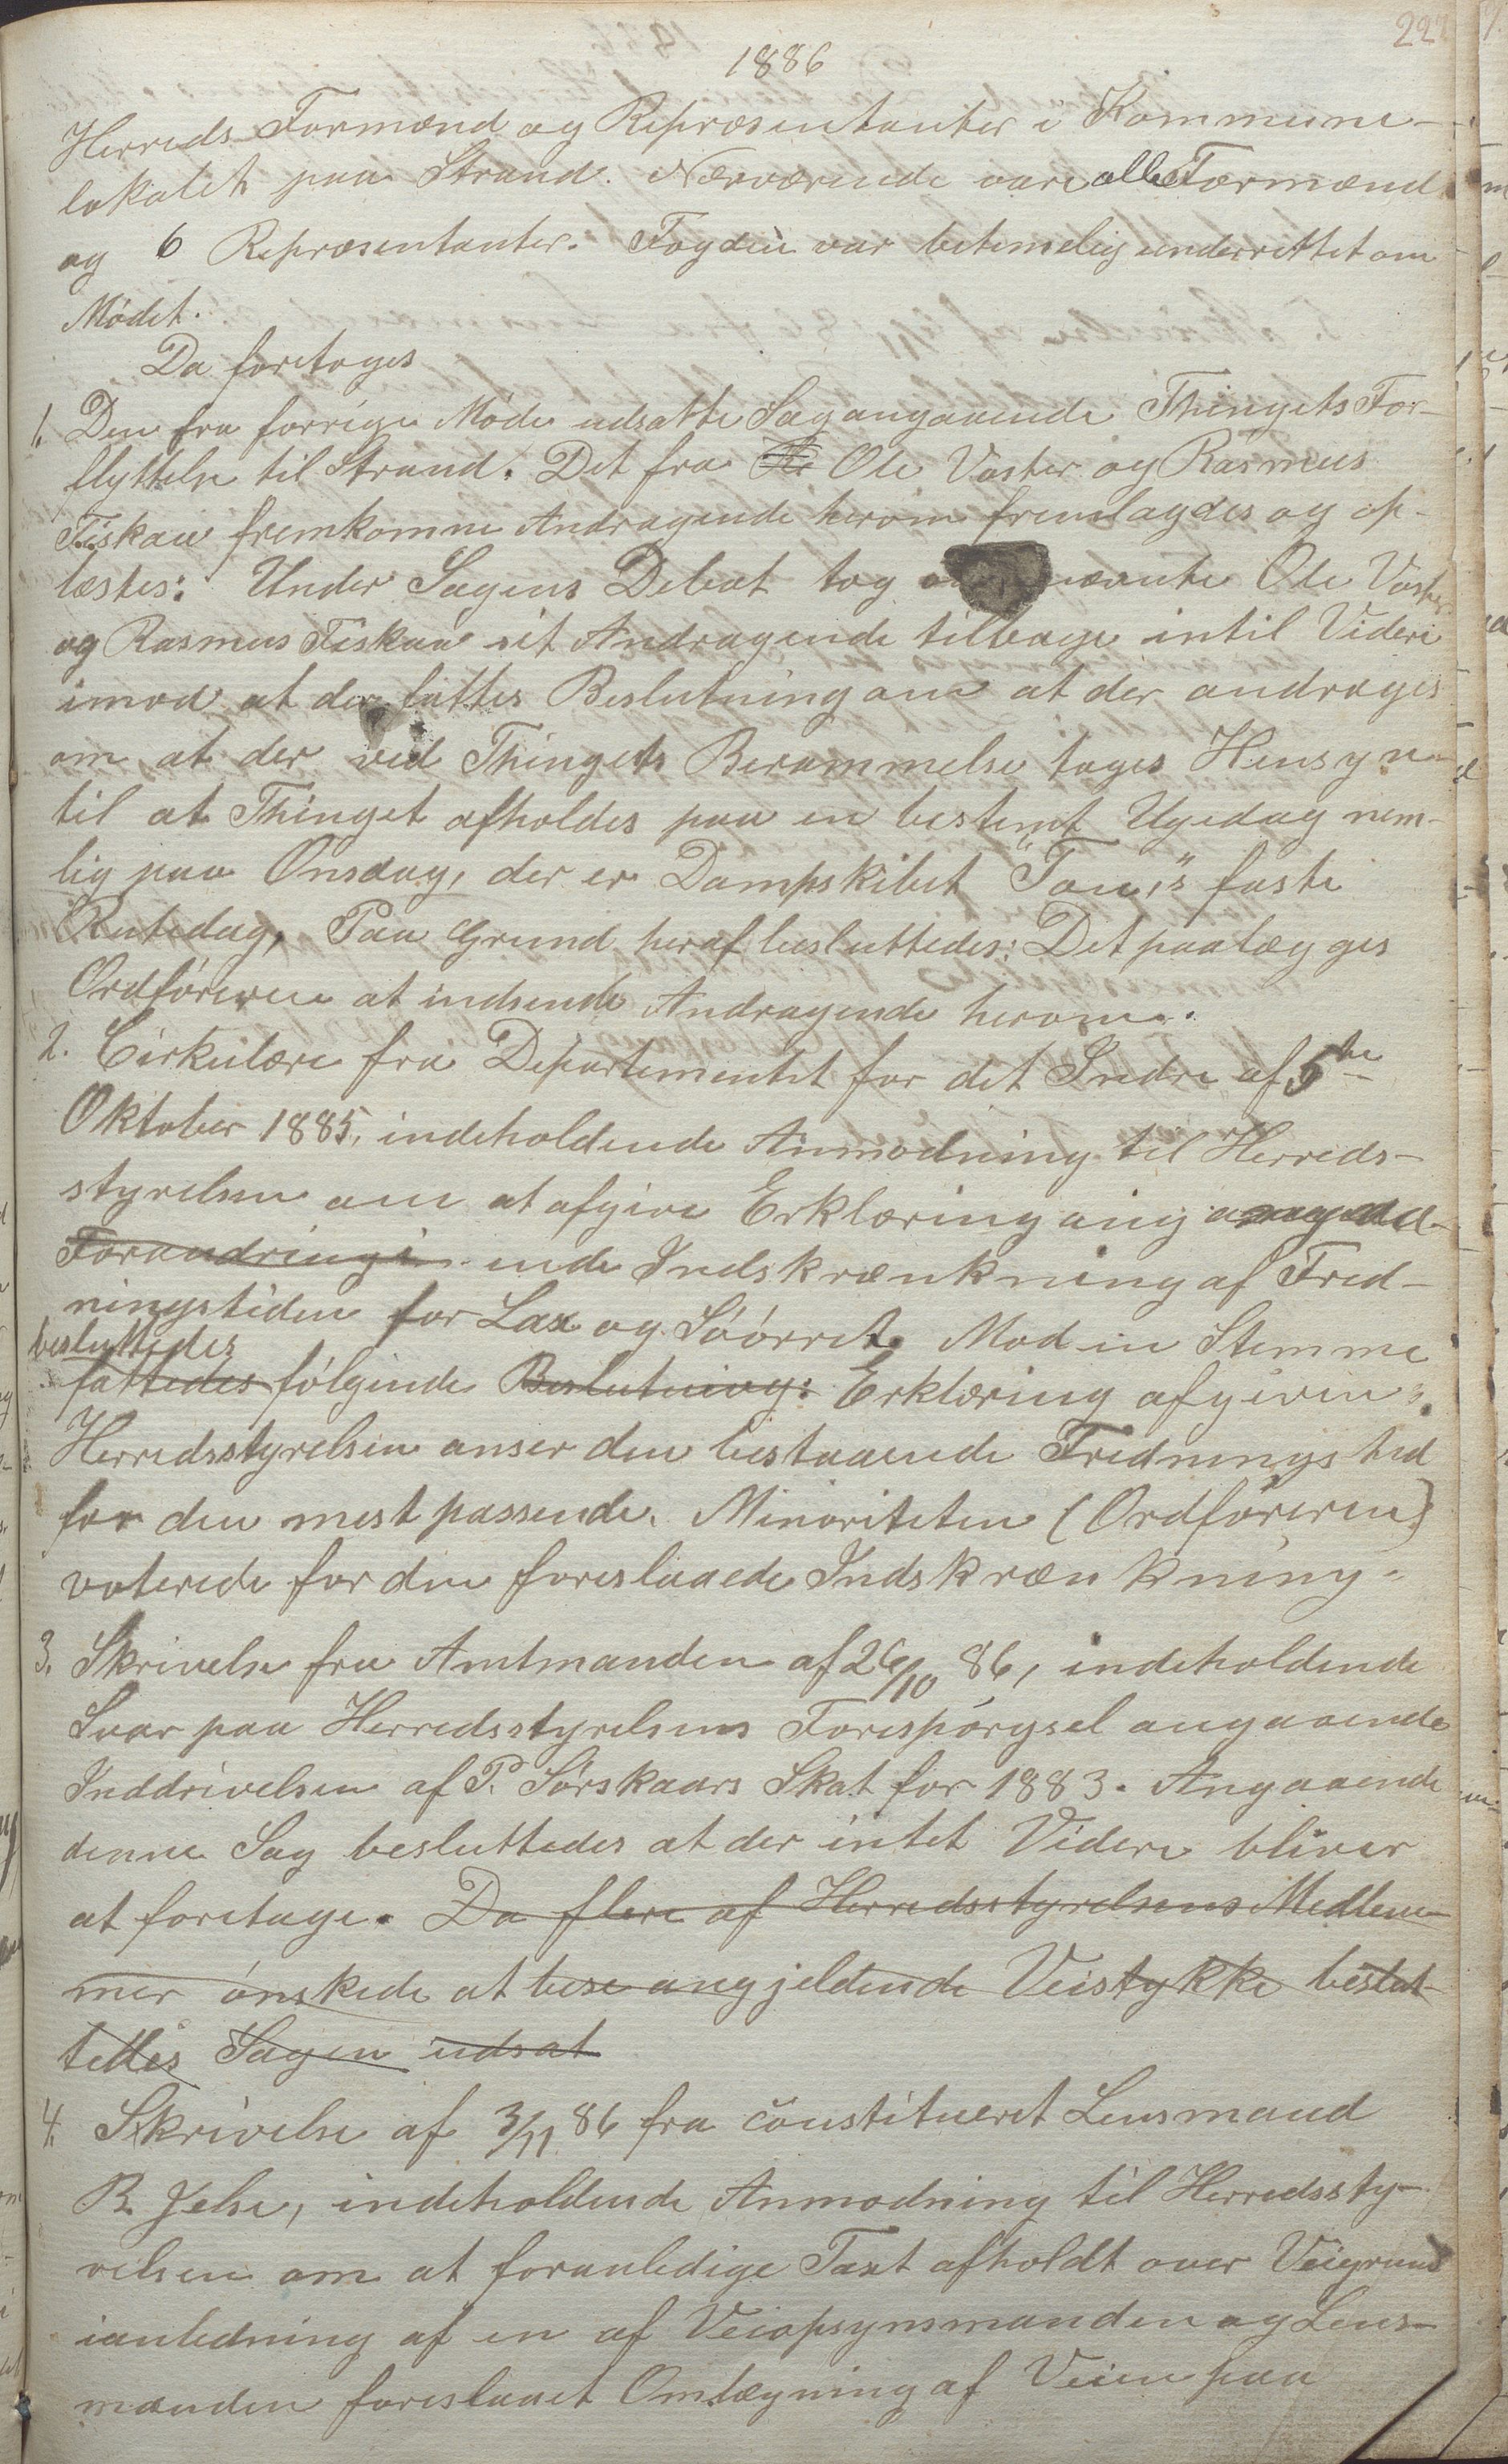 1886
Herreds Formænd og Repræsentanter i Kommune-
lokalet paa Strand. Nærværende vare alle Formænd
og 6 Repræsentanter. Fogden var betimelig underrettet om
Mødet.
Da foretoges
1. Den fra forrige Møde udsatte Sag angaaende Thingets For-
flyttelse til Strand. Det fra Ole Vaster og Rasmus
Fiskaa fremkomne Andragende herom fremlagdes og op-
læstes: Under Sagens Debat tog nævnte Ole Vaster
og Rasmus Fiskaa sit Andragende tilbage intil Videre
imod at der fattes Beslutning om at der andrages
om at der ved Thingets Berammelse tages Hensyn
til at Thinget afholdes paa en bestemt Ugedag nem-
lig paa Onsdag, der er Dampskibet "Tau,"s faste
Rutedag, Paa Grund heraf besluttedes: Det paalægges
Ordføreren at indsende Andragende herom.
2. Cirkulære fra Departementet for det Indre af 5te
Oktober 1885, indeholdende Anmodning til Herreds-
styrelsen om at afgive Erklæring ang angaa-
Forandring i ende Indskrænkning af Fred-
ningstiden for Lax og Søørret. Mod en Stemme
besluttedes
fattedes følgende Beslutning: Erklæring afgiven:
Herredsstyrelsen anser den bestaaende Fredningstid
for den mest passende. Minoriteten (Ordføreren)
voterede for den foreslaaede Indskrænkning.
3. Skrivelse fra Amtmanden af 26/10 86, indeholdende
Svar paa Herredsstyrelsens Forespørgsel angaaende
Inddrivelsen af P. Sørskaars Skat for 1883. Angaaende
denne Sag besluttedes at der intet Videre bliver
at foretage. Da flere af Herredsstyrelsens Medlem-
mer ønskede at bese angjeldende Veistykke beslut-
tedes Sagen udsat
4. Skrivelse af 3/11 86 fra constitueret Lensmand
B. Jelse, indeholdende Anmodning til Herredssty-
relsen om at foranledige Taxt afholdt over Veigrund
ianledning af en af Veiopsynsmanden og Lens-
manden foreslaaet Omlægning af Veien paa